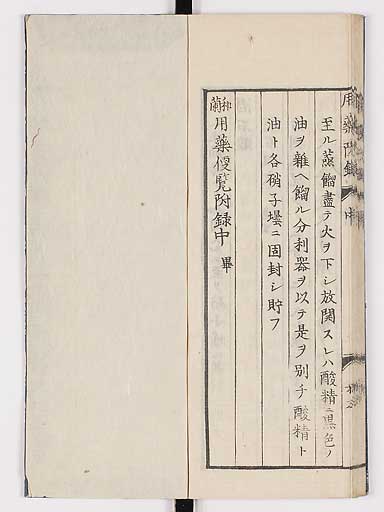 至ル蒸餾盡テ火ヲ下シ放開スレハ酸精ニ黒色ノ
油ヲ雜ヘ餾ル分利器ヲ以テ是ヲ別チ酸精ト
油ト各硝子壜ニ固封シ貯フ
和蘭用藥便覧附録中 畢
用藥附録 中